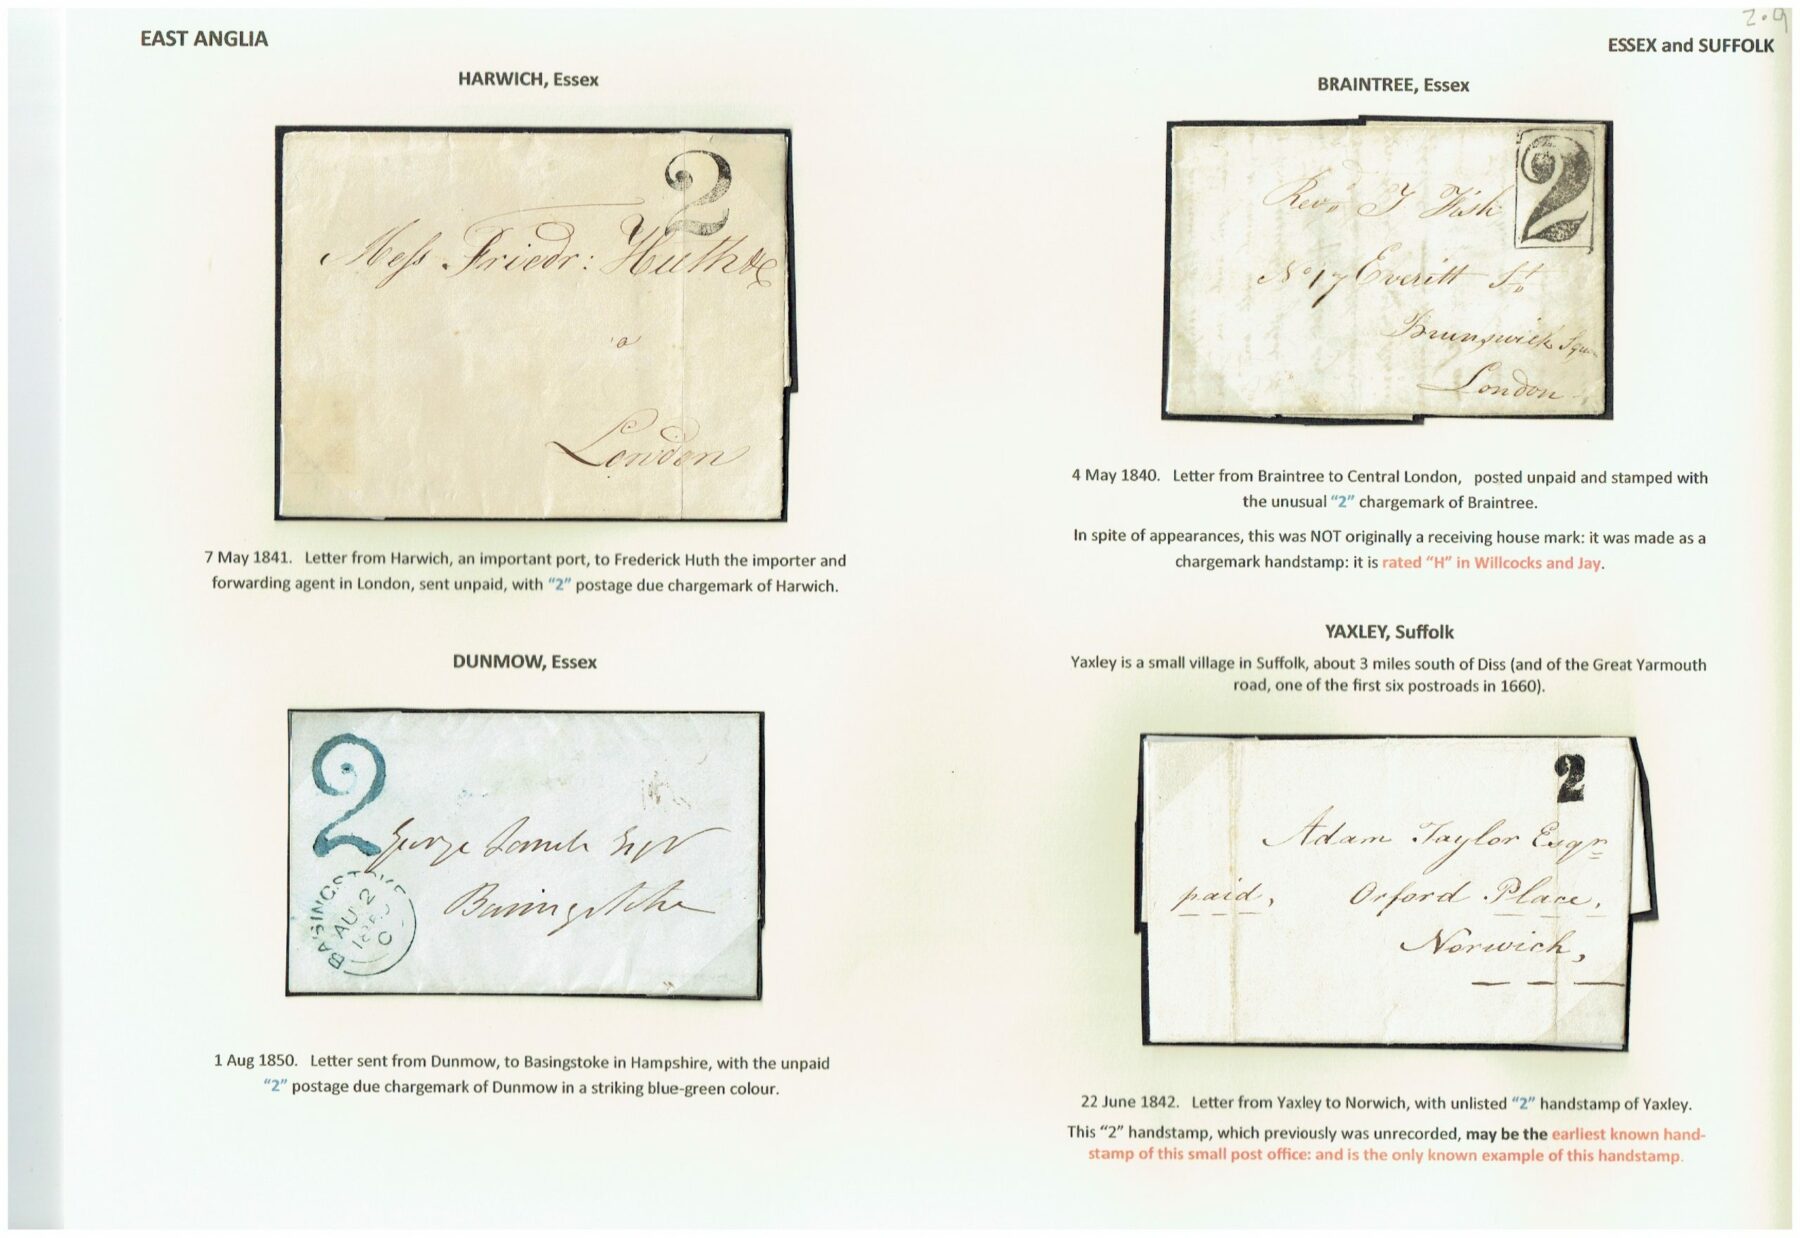 2.9
EAST ANGLIA
ESSEX and SUFFOLK
HARWICH, Essex
2
Mess Friedr: Huth &c
a
London
7 May 1841. Letter from Harwich, an important port, to Frederick Huth the importer and
forwarding agent in London, sent unpaid, with “2” postage due chargemark of Harwich.
DUNMOW, Essex
2
George Lamb Esqr
Basingstoke
BASINGSTOKE
AU 2
1850
C
1 Aug 1850. Letter sent from Dunmow, to Basingstoke in Hampshire, with the unpaid
“2” postage due chargemark of Dunmow in a striking blue-green colour.
BRAINTREE, Essex
2
Revd J Fish
No 17 Everitt St
Brunswick Square
London
4 May 1840. Letter from Braintree to Central London, posted unpaid and stamped with
the unusual “2” chargemark of Braintree.
In spite of appearances, this was NOT originally a receiving house mark: it was made as a
chargemark handstamp: it is rated “H” in Willcocks and Jay.
YAXLEY, Suffolk
Yaxley is a small village in Suffolk, about 3 miles south of Diss (and of the Great Yarmouth
road, one of the first six postroads in 1660).
2
Adam Taylor Esqr
paid, Orford Place,
Norwich,
22 June 1842. Letter from Yaxley to Norwich, with unlisted “2” handstamp of Yaxley.
This “2” handstamp, which previously was unrecorded, may be the earliest known hand-
stamp of this small post office: and is the only known example of this handstamp.